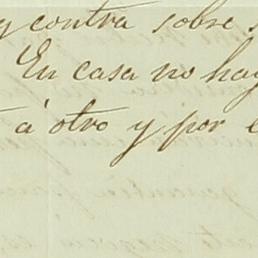 y contra sobre
En casa no hay
á otro y por